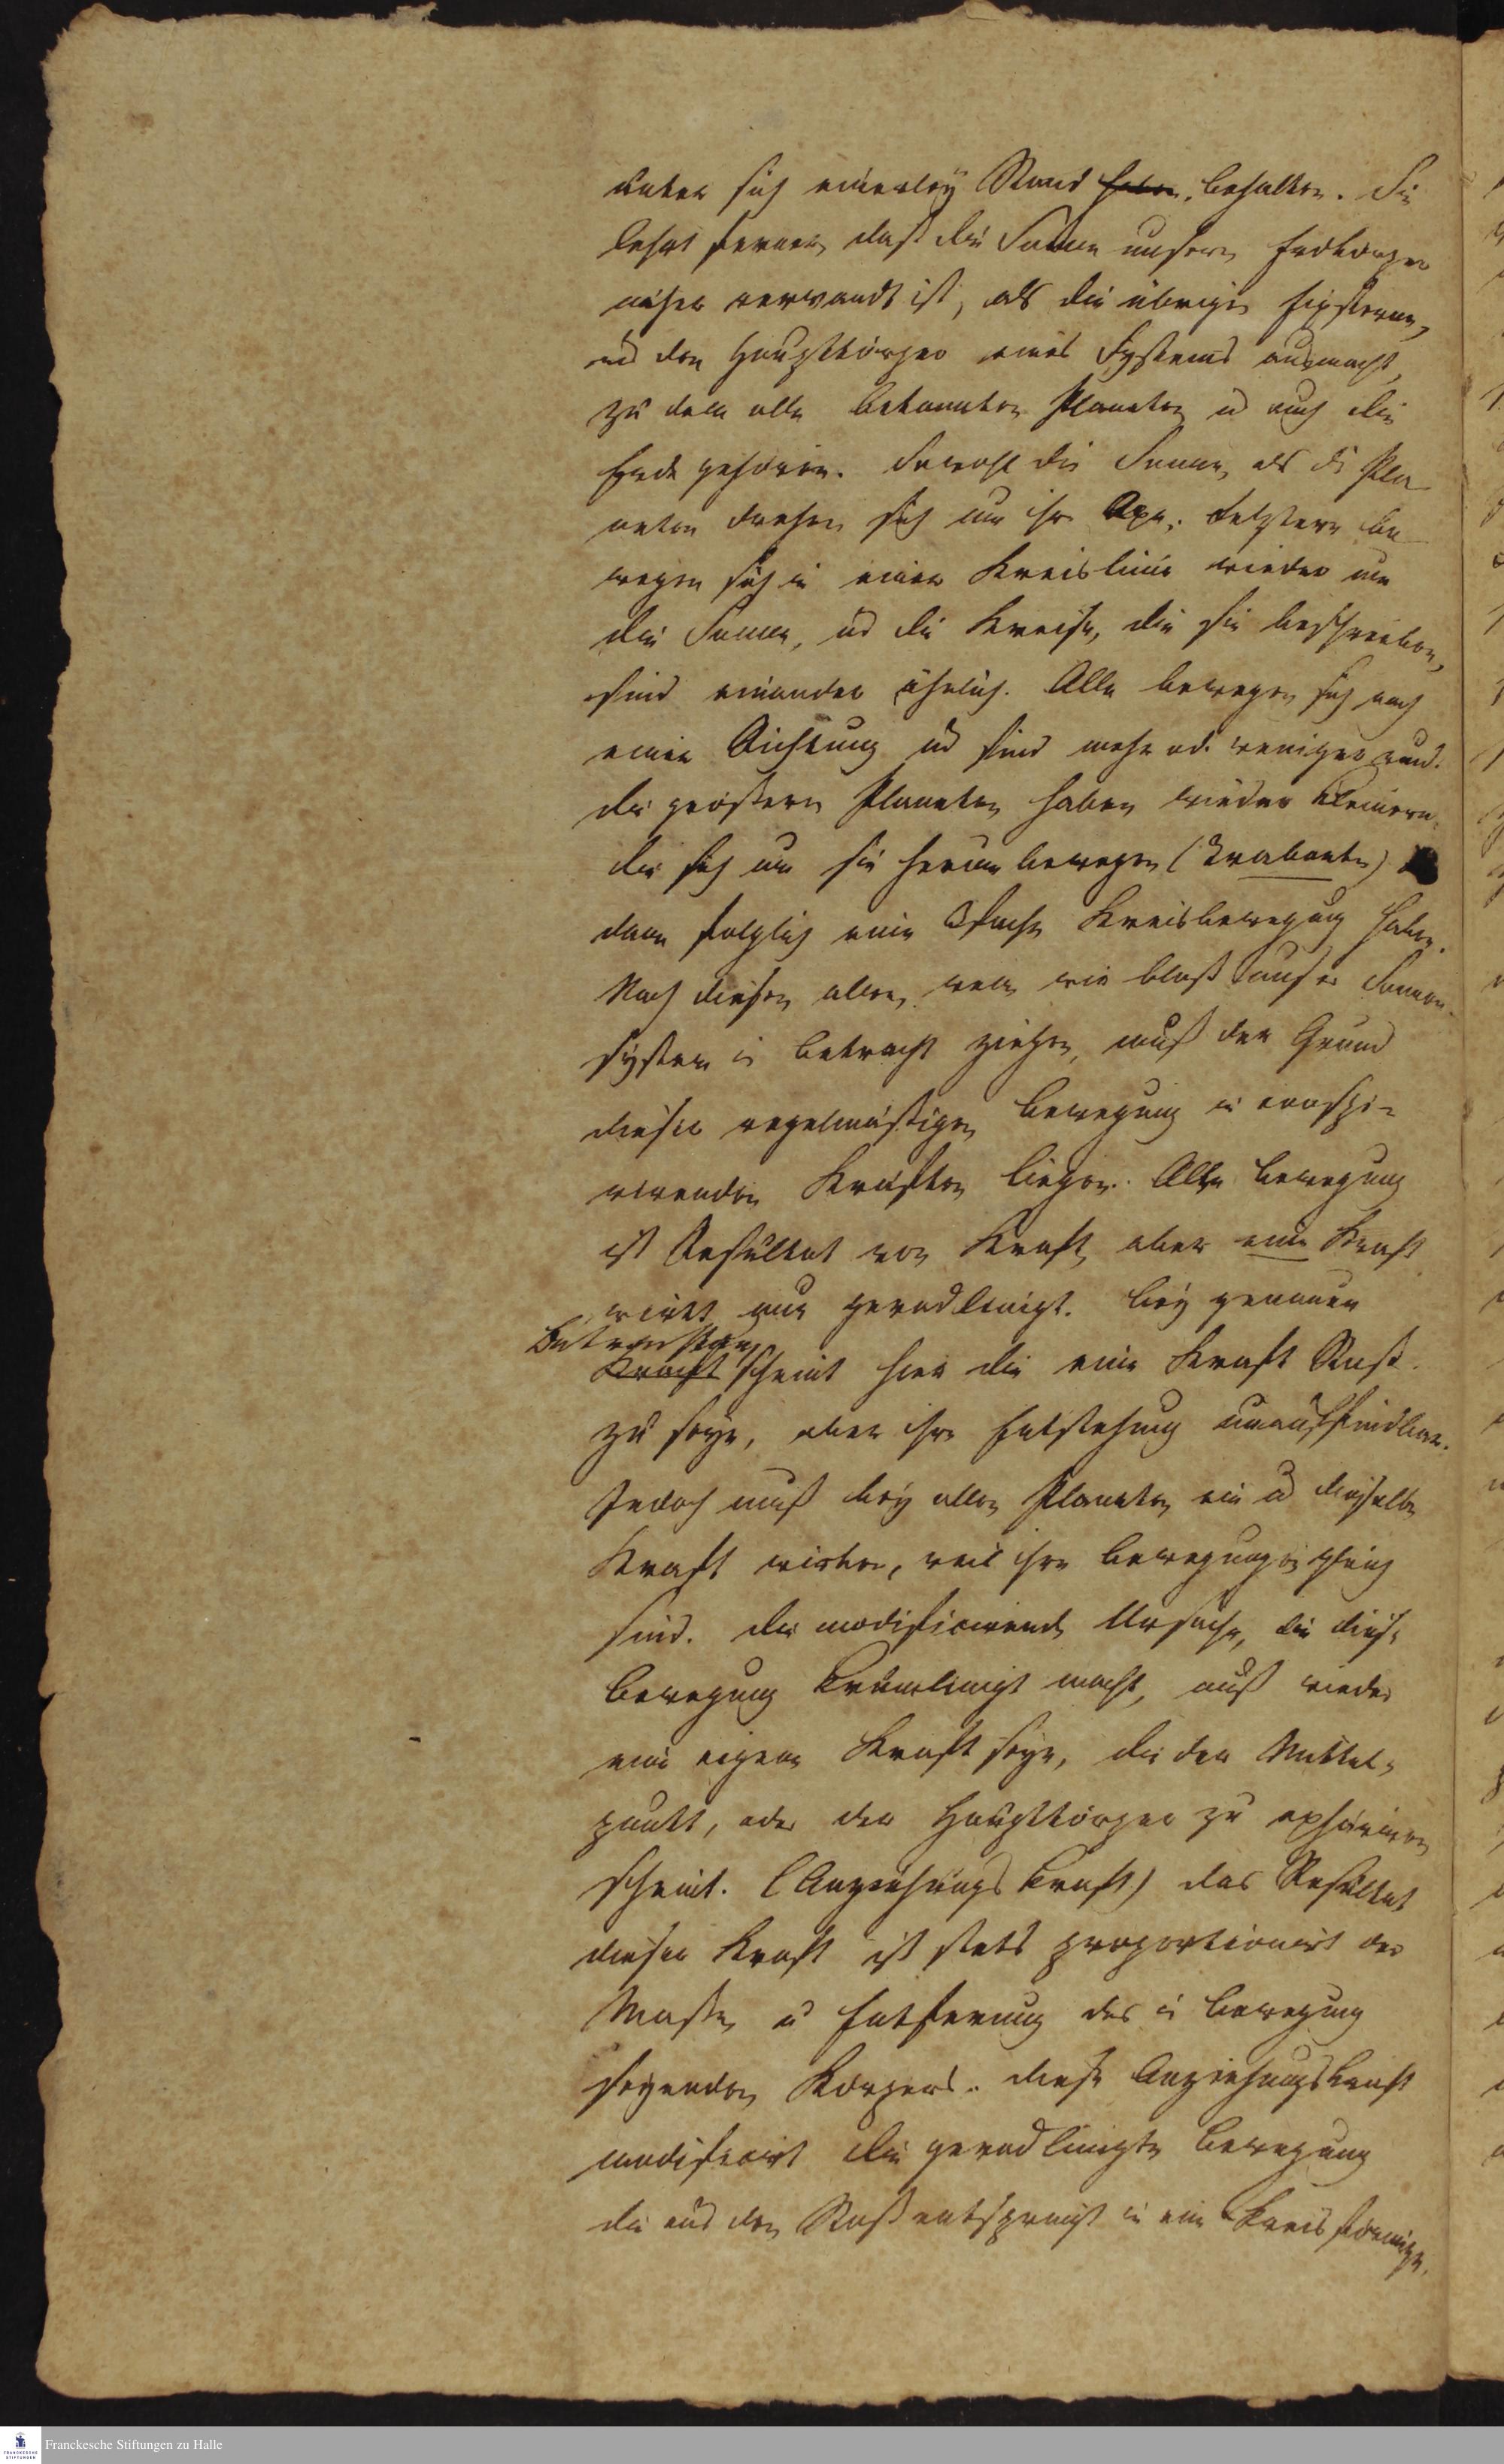 unter sich einerley Stand haben. behalten. Sie
lehrt ferner, daß die Sonne unserm Erdkörper
näher verwandt ist, als die übrigen Fixsterne,
ud den Hauptkörper eines Systems ausmacht,
zu dem alle bekannten Planeten ud auch die
Erde gehören. Sowohl die Sonne, als di Pla-
neten drehen sich um ihre Axe; letztere be-
wegen sich in einer Kreislinie wieder um
die Sonne, ud die Kreise, die sie beschreiben,
sind einander ähnlich. Alle bewegen sich nach
einer Richtung ud sind mehr od. weniger rund.
die größern Planeten haben wieder kleinere
die sich um sie herum bewegen (Trabanten)
dann folglich eine 3fache Kreisbewegung haben.
Nach diesen allen, wenn wir bloß unser Sonnen-
system in Betracht ziehen, muß der Grund
dieser regelmäßigen Bewegung in conspi-
rirenden Kräften liegen. Alle Bewegung
ist Resultat von Kraft, aber eine Kraft
wirkt nur geradlinigt. bey genauer
Betrachtung
Kraft scheint hier die eine Kraft Stoß
zu seyn, aber ihre Entstehung unauffindbar.
Jedoch muß bey allen Planeten ein ud dieselbe
Kraft wirken, weil ihre Bewegungen gleich
sind. die modificirende Ursache, die diese
Bewegung krumlinigt macht, muß wieder
eine eigene Kraft seyn, die den Mittel-
punkt, oder den Hauptkörper zu
scheint. (Anziehungs Kraft) das Resultat
dieser Kraft ist stets proportionirt der
Masse u Entfernung des in Bewegung
seyenden Körpers. diese Anziehungskraft
modificirt die geradlinigte Bewegung
die aus dem Stoß entspringt in eine Kreisförmige.
Franckesche Stiftungen zu Halle